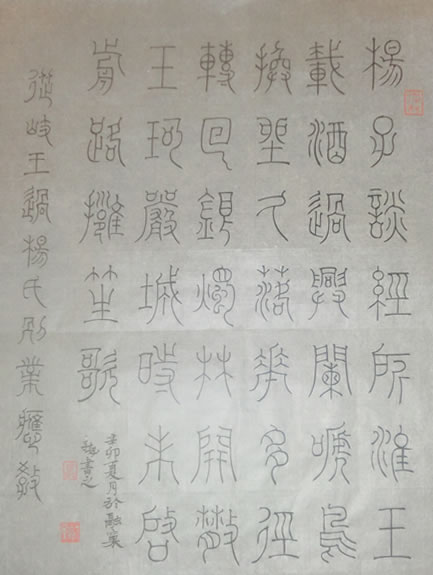 楊子談經所淮王
載酒過興闌嗁鳥
換坐久落華多徑
轉回銀燭林開散
玉珂嚴城時未啓
前路擁笙歌
從岐王過楊氏別業應教
辛卯夏月於
書之